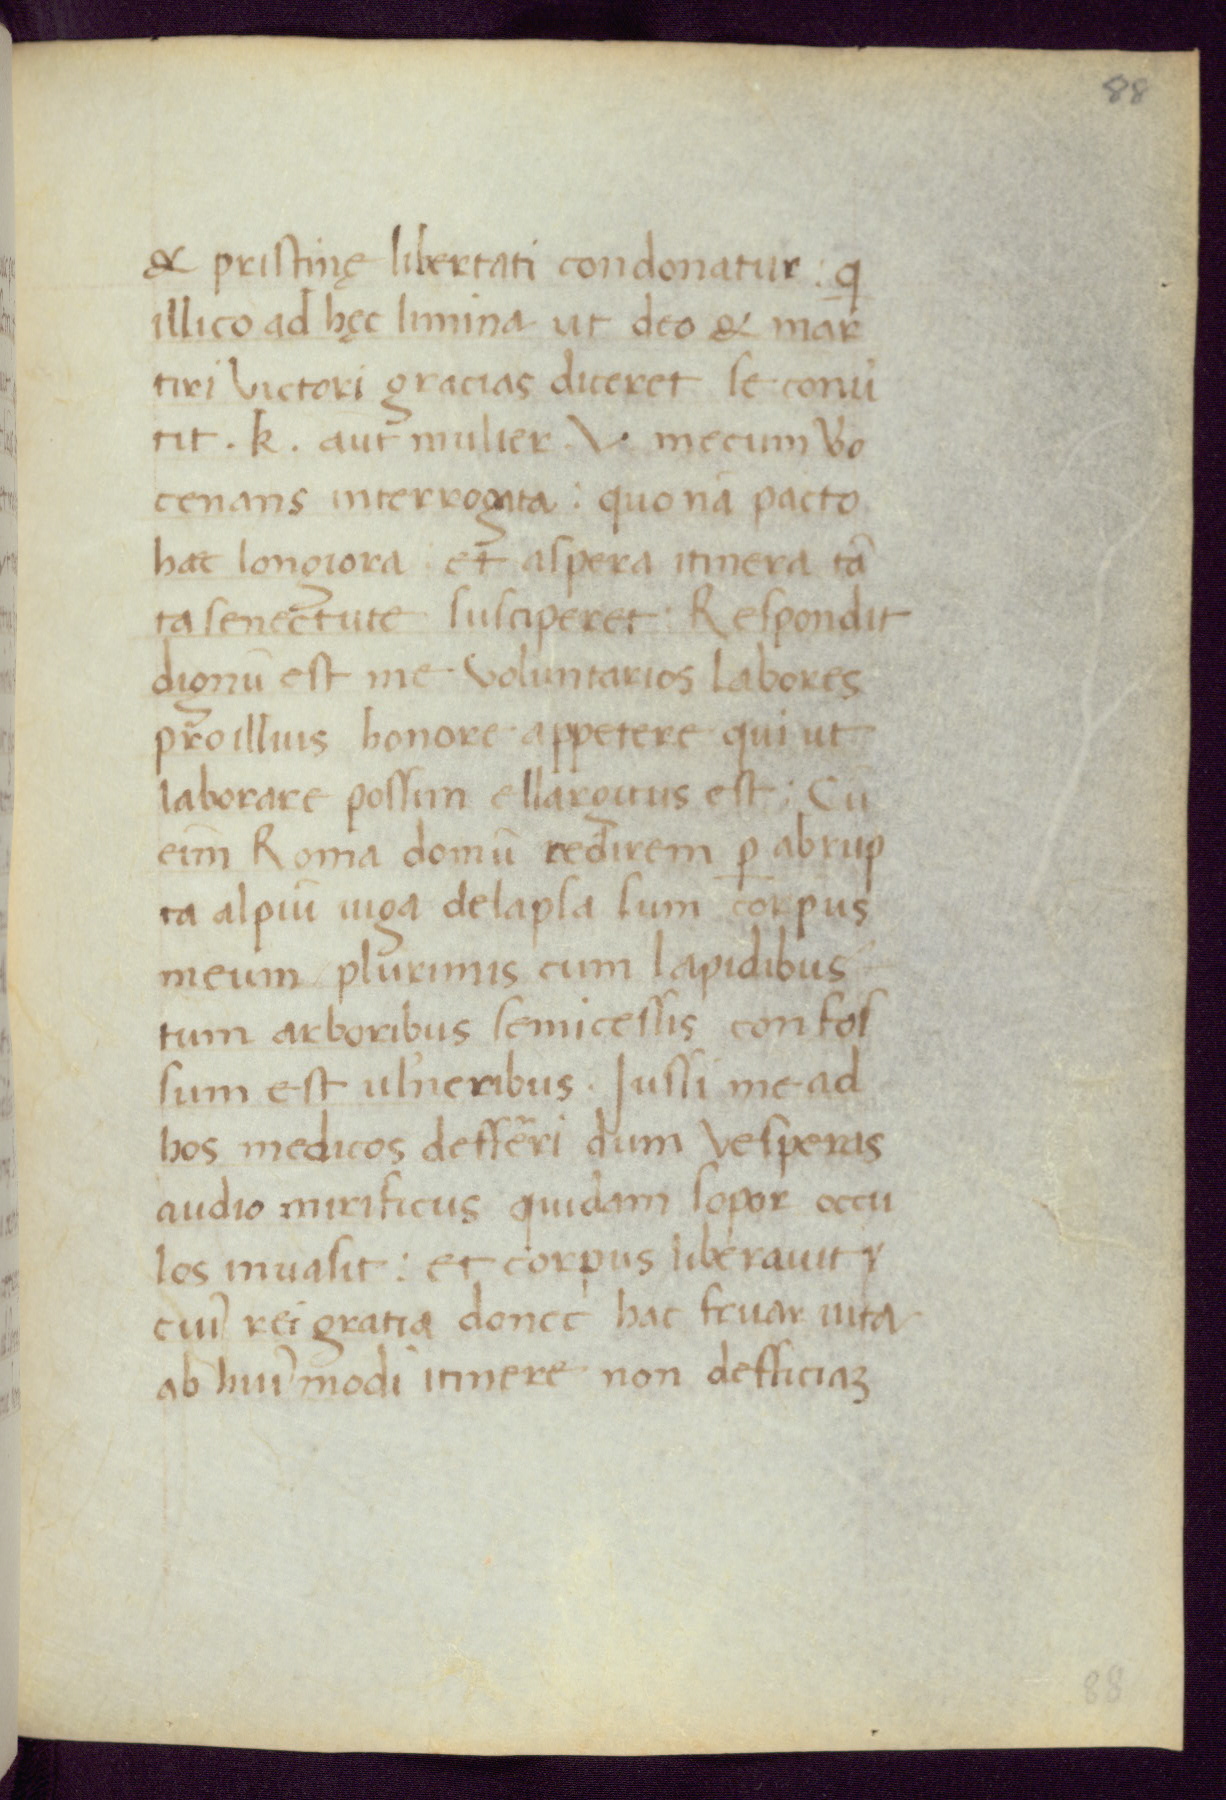 88
& pristinę libertati condonatur : q
illico ad hęc limina ut deo & mar
tiri Victori gracias diceret se conu̾
tit . k . aut mulier . V . mecum Vo
cenans interrogata : quo nā pacto
hac longiora et aspera itinera tā
ta senectute susciperet : Respondit
dignū est me voluntarios labores
pro illius honore appetere qui ut
laborare possim ellargitus est ; Cū
eīm Roma domū redirem ꝑ abrup
ta alpiū iuga delapsa sum corpus
meum plurimis cum lapidibus
tum arboribus semicessis confos
sum est ulneribus . Jussi me ad
hos medicos defferri dum Vesperas
audio mirificus quidam sopor occu
los inuasit : et corpus liberauit
cui᾿ rei gratia donec hac fruar uita
ab hui᾿modi itinere non defficiaꝫ
88